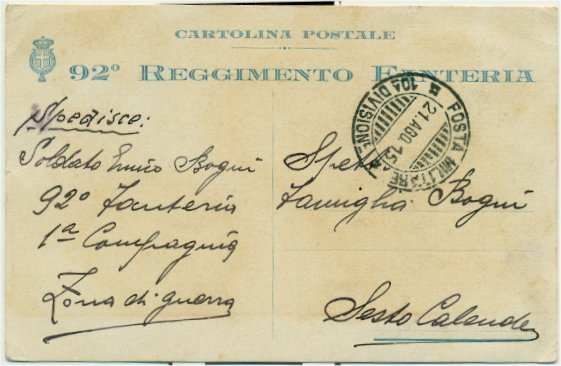 CARTOLINA POSTALE
92º REGGIMENTO FANTERIA
Spedisce:
Soldato Enrico Bogni
92º Fanteria
1ª Compagnia
Zona di guerra
POSTA MILITARE
10ª DIVISIONE
21. AGO. 15
Spett.
Famiglia Bogni
Sesto Calende